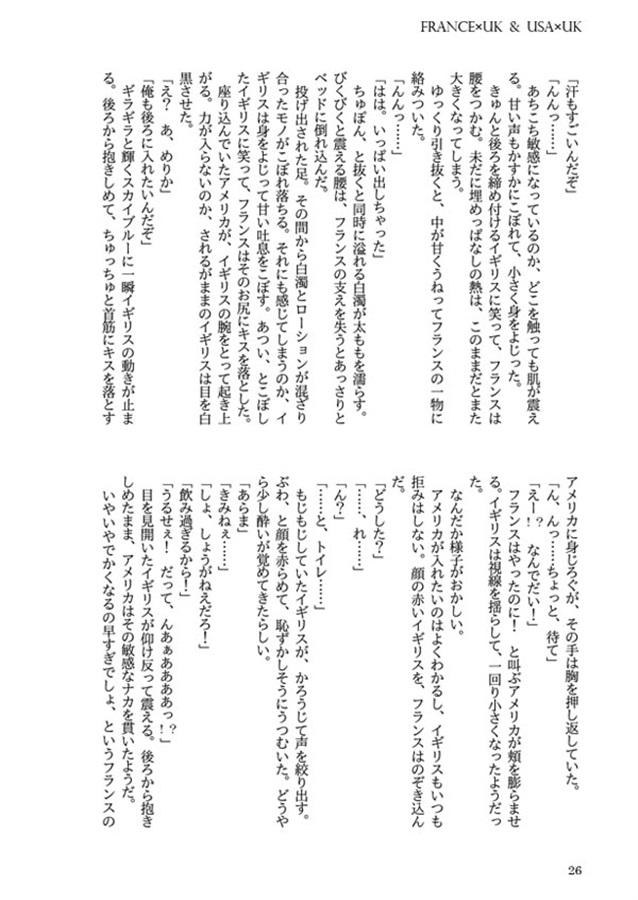 FRANCE×UK & USA×UK
「汗もすごいんだぞ」
「んんっ……」
　あちこち敏感になっているのか、どこを触っても肌が震え
る。甘い声もかすかにこぼれて、小さく身をよじった。
　きゅんと後ろを締め付けるイギリスに笑って、フランスは
腰をつかむ。未だに埋めっぱなしの熱は、このままだとまた
大きくなってしまう。
　ゆっくり引き抜くと、中が甘くうねってフランスの一物に
絡みついた。
「んんっ……」
「はは。いっぱい出しちゃった」
　ちゅぽん、と抜くと同時に溢れる白濁が太ももを濡らす。
びくびくと震える腰は、フランスの支えを失うとあっさりと
ベッドに倒れ込んだ。
　投げ出された足。その間から白濁とローションが混ざり
合ったモノがこぼれ落ちる。それにも感じてしまうのか、イ
ギリスは身をよじって甘い吐息をこぼす。あつい、とこぼし
たイギリスに笑って、フランスはそのお尻にキスを落とした。
　座り込んでいたアメリカが、イギリスの腕をとって起き上
がる。力が入らないのか、されるがままのイギリスは目を白
黒させた。
「え？　あ、めりか」
「俺も後ろに入れたいんだぞ」
　ギラギラと輝くスカイブルーに一瞬イギリスの動きが止ま
る。後ろから抱きしめて、ちゅっちゅと首筋にキスを落とす
アメリカに身じろぐが、その手は胸を押し返していた。
「ん、んっ……ちょっと、待て」
「えー！？　なんでだい！」
　フランスはやったのに！　と叫ぶアメリカが頬を膨らませ
る。イギリスは視線を揺らして、一回り小さくなったようだっ
た。
　なんだか様子がおかしい。
　アメリカが入れたいのはよくわかるし、イギリスもいつも
拒みはしない。顔の赤いイギリスを、フランスはのぞき込ん
だ。
「どうした？」
「……、れ……」
「ん？」
「……と、トイレ……」
　もじもじしていたイギリスが、かろうじて声を絞り出す。
ぶわ、と顔を赤らめて、恥ずかしそうにうつむいた。どうや
ら少し酔いが覚めてきたらしい。
「あらま」
「きみねぇ……」
「しょ、しょうがねえだろ！」
「飲み過ぎるから！」
「うるせぇ！　だって、んあぁああああっ？！」
　目を見開いたイギリスが仰け反って震える。後ろから抱き
しめたまま、アメリカはその敏感なナカを貫いたようだ。
　いやいやでかくなるの早すぎでしょ、というフランスの
26